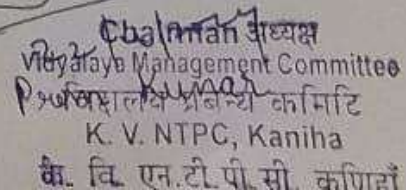 Chairman अध्यक्ष
Vidyalaya Management Committee
विद्यालय प्रबन्ध कमिटि
K. V. NTPC, Kaniha
के. वि. एन.टी.पी.सी. कणिहाँ